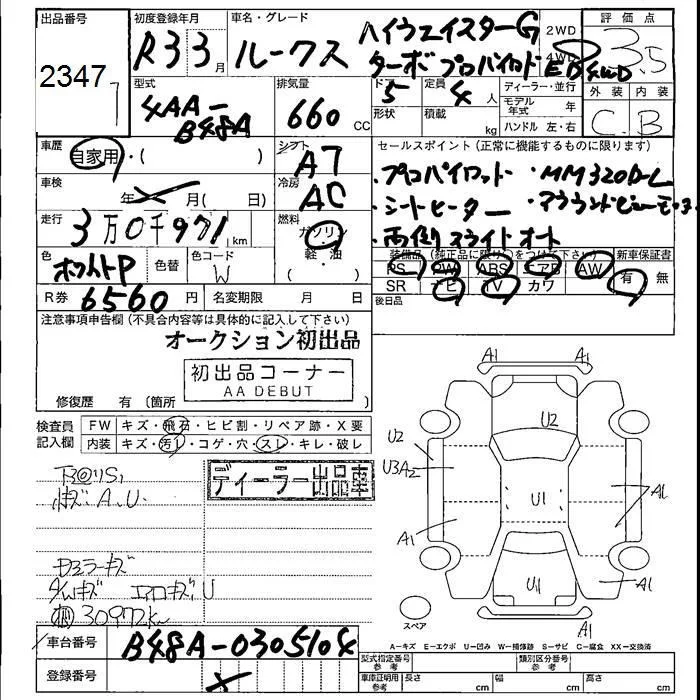 出品番号
2347
初度登録年月
R33月
車名・グレード
ルークス
ハイウェイスターG
ターボ プロパイロットED 4WD
2WD
4WD
評価点
3.5
外装 内装
C B
型式
4AA-
B48A
排気量
660 CC
ドア
5
定員
4 人
形状
積載
kg
ディーラー・並行
モデル年式 年
ハンドル 左・右
車歴
自家用・( )
シフト
AT
車検
年 月( 日)
冷房
AC
走行
3万0千971km
燃料
ガソリン
軽・油
( )
色
ホワイトP
色替
色コード
W
R券 6560円
名変期限 月 日
セールスポイント(正常に機能するものに限ります)
・プロパイロット ・MM320D-L
・シートヒーター ・アラウンドビューモニター
・両側スライドオート
装備品(純正品に限り○をつけて下さい)
PS PW ABS エアB AW
SR ナビ TV カワ
新車保証書
有 無
後日品
注意事項申告欄(不具合内容等は具体的に記入して下さい)
オークション初出品
初出品コーナー
AA DEBUT
修復歴 有 (箇所
検査員
記入欄
FW キズ・飛石・ヒビ割・リペア跡・X要
内装 キズ・汚れ・コゲ・穴・スレ・キレ・破レ
ディーラー出品車
キズA.U.
ドアミラーキズ
エアロキズU
30972km
車台番号 B48A-0305104
登録番号
A1 A1
U2
U2
U3A2
U1
A1
A1
U1
A1
A1
スペア
A-キズ E-エクボ U-凹み W-補修跡 S-サビ C-腐食 XX-交換済
型式指定番号
参考
類別区分番号
参考
車庫証明用
参考
長さ cm
幅 cm
高さ cm